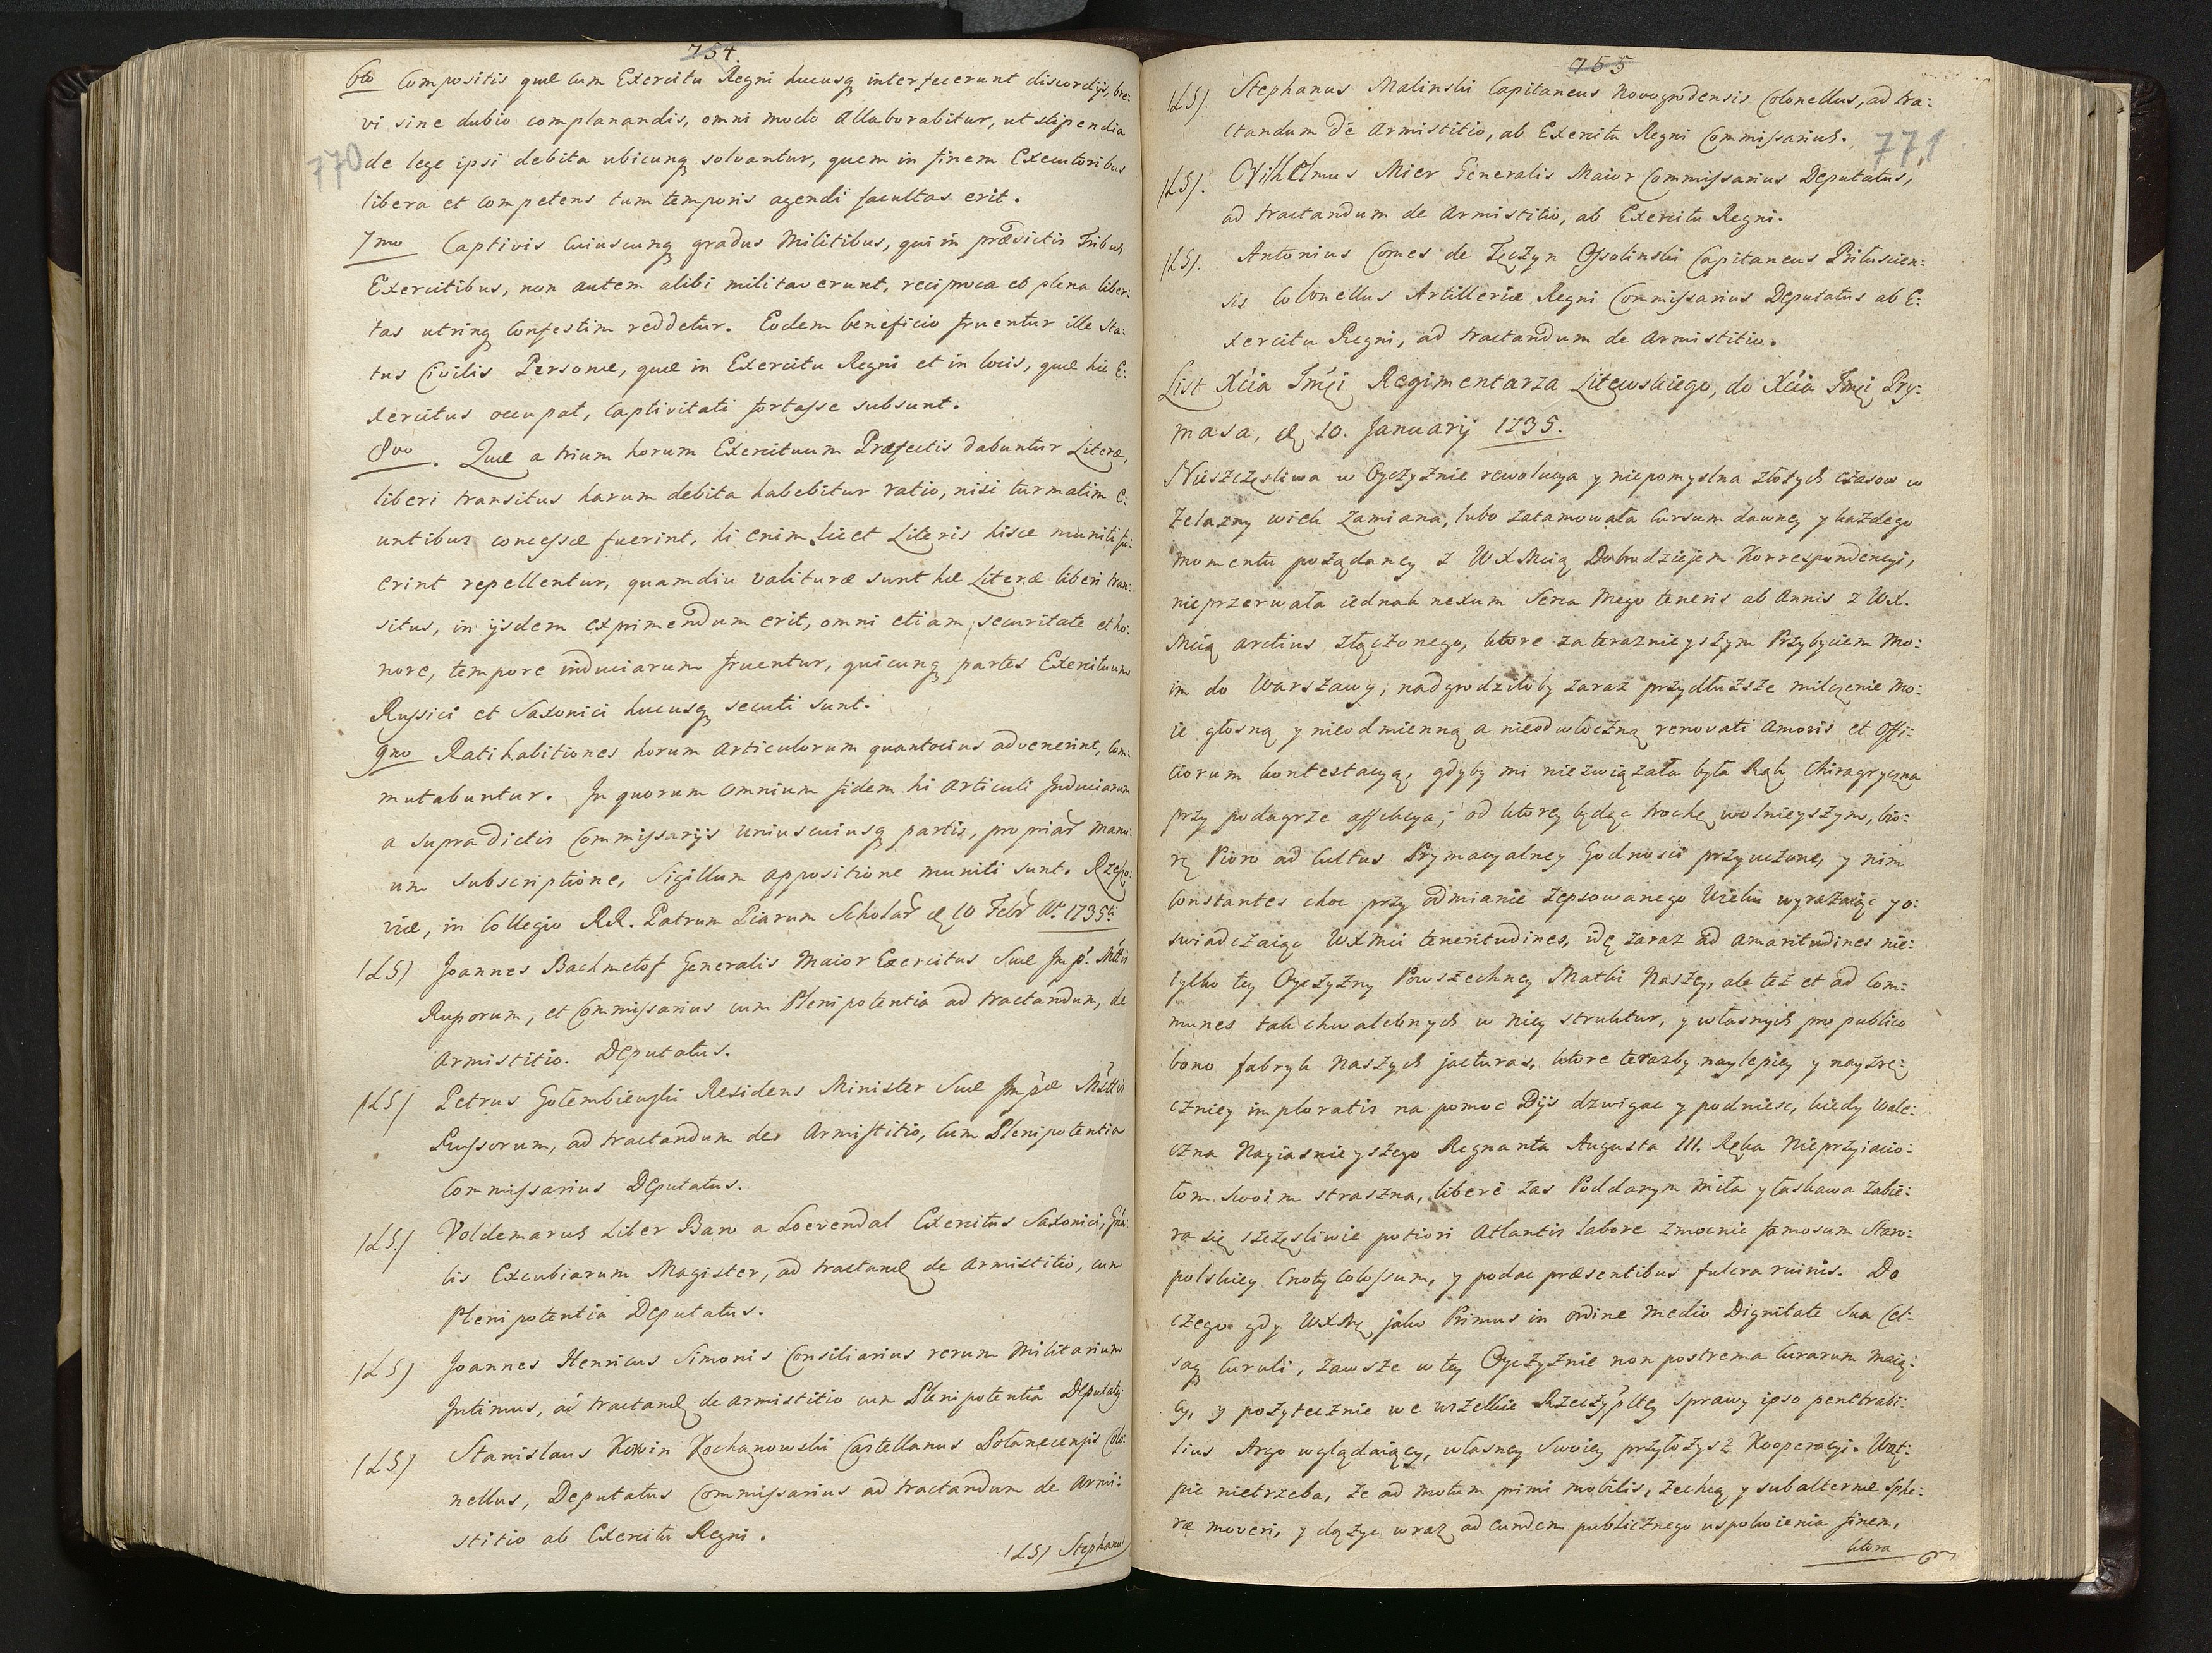 754.
6to Compositis quæ cum Exercitu Regni hucusq interfecerunt discordijs, bre:
vi sine dubio complanandis, omni modo allaborabitur, ut stipendia
770 de lege ipsi debita ubicunq solvantur, quem in finem Executoribus
libera et competens tum temporis agendi facultas erit.
7mo Captivis cuiuscunq gradus Militibus, qui in prædictis Tribus
Exercitibus, non autem alibi militaverunt, reciproca et plena liber:
tas utrinq confestim reddetur. Eodem beneficio fruentur illæ Sta:
tus Civilis Personæ, quæ in Exercitu Regni et in locis, quæ hic E:
xercitus occupat, captivitati fortasse subsunt.
8vo. Quæ a trium horum Exercituum Præfectis dabuntur Literæ,
liberi transitus harum debita habebitur ratio, nisi turmatim e:
untibus concessæ fuerint, hi enim licet Literis hisce muniti fu:
erint repellentur, quamdiu valituræ sunt hæ Literæ liberi tran:
situs, in ijsdem exprimendum erit, omni etiam securitate et ho:
nore, tempore induciarum fruentur, quicunq partes Exercituum
Russici et Saxonici hucusq secuti sunt.
9no Ratihabitiones horum articulorum quantocius advenerint, com:
mutabuntur. In quorum omnium fidem hi articuli Induciarum
a supradictis Commissarijs uniuscuiusq partis, propriar manu:
um subscriptione, Sigillum appositione muniti sunt. Rzeszo:
viæ, in Collegio RR. Patrum Piarum Scholar d 10 Febr Ao. 1735ti
(LS) Joannes Bachmetof Generalis Maior Exercitus Suæ Imp. Mttis
Russorum, et Commissarius cum Plenipotentia ad tractandum, de
Armistitio. Deputatus.
(LS) Petrus Golembiewski Residens Minister Suæ Impæ Mttis
Russorum, ad tractandum de Armistitio, cum Plenipotentia
Commissarius Deputatus.
(LS.) Voldemarus Liber Baro a Loevendal Exercitus Saxonici, Gña:
lis Excubiarum Magister, ad tractand de armistitio, cum
Plenipotentia Deputatus.
(LS) Joannes Henricus Simonis Consiliarius rerum Militarium
Intimus, ad tractand de armistitio cum Plenipotentia Deputatq
(LS) Stanislaus Korwin Kochanowski Castellanus Połanecensis Colo:
nellus, Deputatus Commissarius ad tractandum de Armi:
stitio ab Exercitu Regni.
(LS) Stephanus
755
(LS). Stephanus Malinski Capitaneus Novogrodensis Colonellus, ad tra:
ctandum de Armistitio, ab Exercitu Regni Commissarius. 771
(LS). Wilhelmus Mier Generalis Maior Commissarius Deputatus,
ad tractandum de Armistitio, ab Exercitu Regni.
(LS). Antonius Comes de Tęczyn Ossolinski Capitaneus Piluscien:
sis Colonellus Artilleriæ Regni Commissarius Deputatus ab E:
xercitu Regni, ad tractandum de Armistitio.
List Xcia Imći Regimentarza Litewskiego, do Xcia Imći Pry:
masa, d 10. Januarij 1735.
Nieszczęsliwa w Oyczyznie rewolucya y niepomyslna złotych czasow w
żelazny wiek zamiana, lubo zatamowała cursum dawney y każdego
momentu pożądaney z WXMcią Dobrodziejem Korrespondencyi,
nieprzerwała iednak nexum Serca Mego teneris ab annis z WX.
Mcią arctius złączonego, ktore za teraznieyszym Przybyciem mo:
im do Warszawy, nadgrodziłoby zaraz przydłuższe milczenie mo:
ie głosną y nieodmienną a nieodwłoczną renovati amoris et Offi:
ciorum kontestacyą, gdyby mi niezwiązała była Rąk Chiragryczna
przy podagrze affekcya; od ktorey będąc trochę wolnieyszym, bio:
rę Pioro ad cultus Prymacyalney Godnosci przyuczone, y nim
constantes choc przy odmianie zepsowanego Wieku wyrażaiąc y o:
swiadczaiąc WXMci teneritudines, idę zaraz ad amaritudines nie:
tylko tey Oyczyzny Powszechney Matki Naszey, ale też et ad Com:
munes tak chwalebnych w Niey struktur, y własnych pro publico
bono fabryk Naszych jacturas, ktore terazby naylepiey y nayzrę:
czniey imploratis na pomoc Dijs dzwigac y podniesc, kiedy wale:
czna Nayiasnieyszego Regnanta Augusta III. Ręka Nieprzyiacio:
łom swoim straszna, liberè zas Poddanym miła y łaskawa zabie:
ra się szczęsliwie potiori Atlantis labore zmocnic famosum Staro:
polskiey Cnoty colossum, y podac præsentibus fulcra ruinis. Do
czego gdy WXMć jako Primus in ordine medio Dignitate Sua Cel:
saq Curuli, zawsze w tey Oyczyznie non postrema curarum maią:
cy, y pożytecznie we wszelkie Rzeczyplltey sprawy ipso penetrabi:
lius Argo wglądaiący, własney Swoiey przyłożysz Kooperacyi. Wąt:
pic nietrzeba, że ad motum primi mobilis, zechcą y subalternæ Sphe:
ræ moveri, y dążyc wraz ad eundem publicznego uspokoienia finem,
ktora